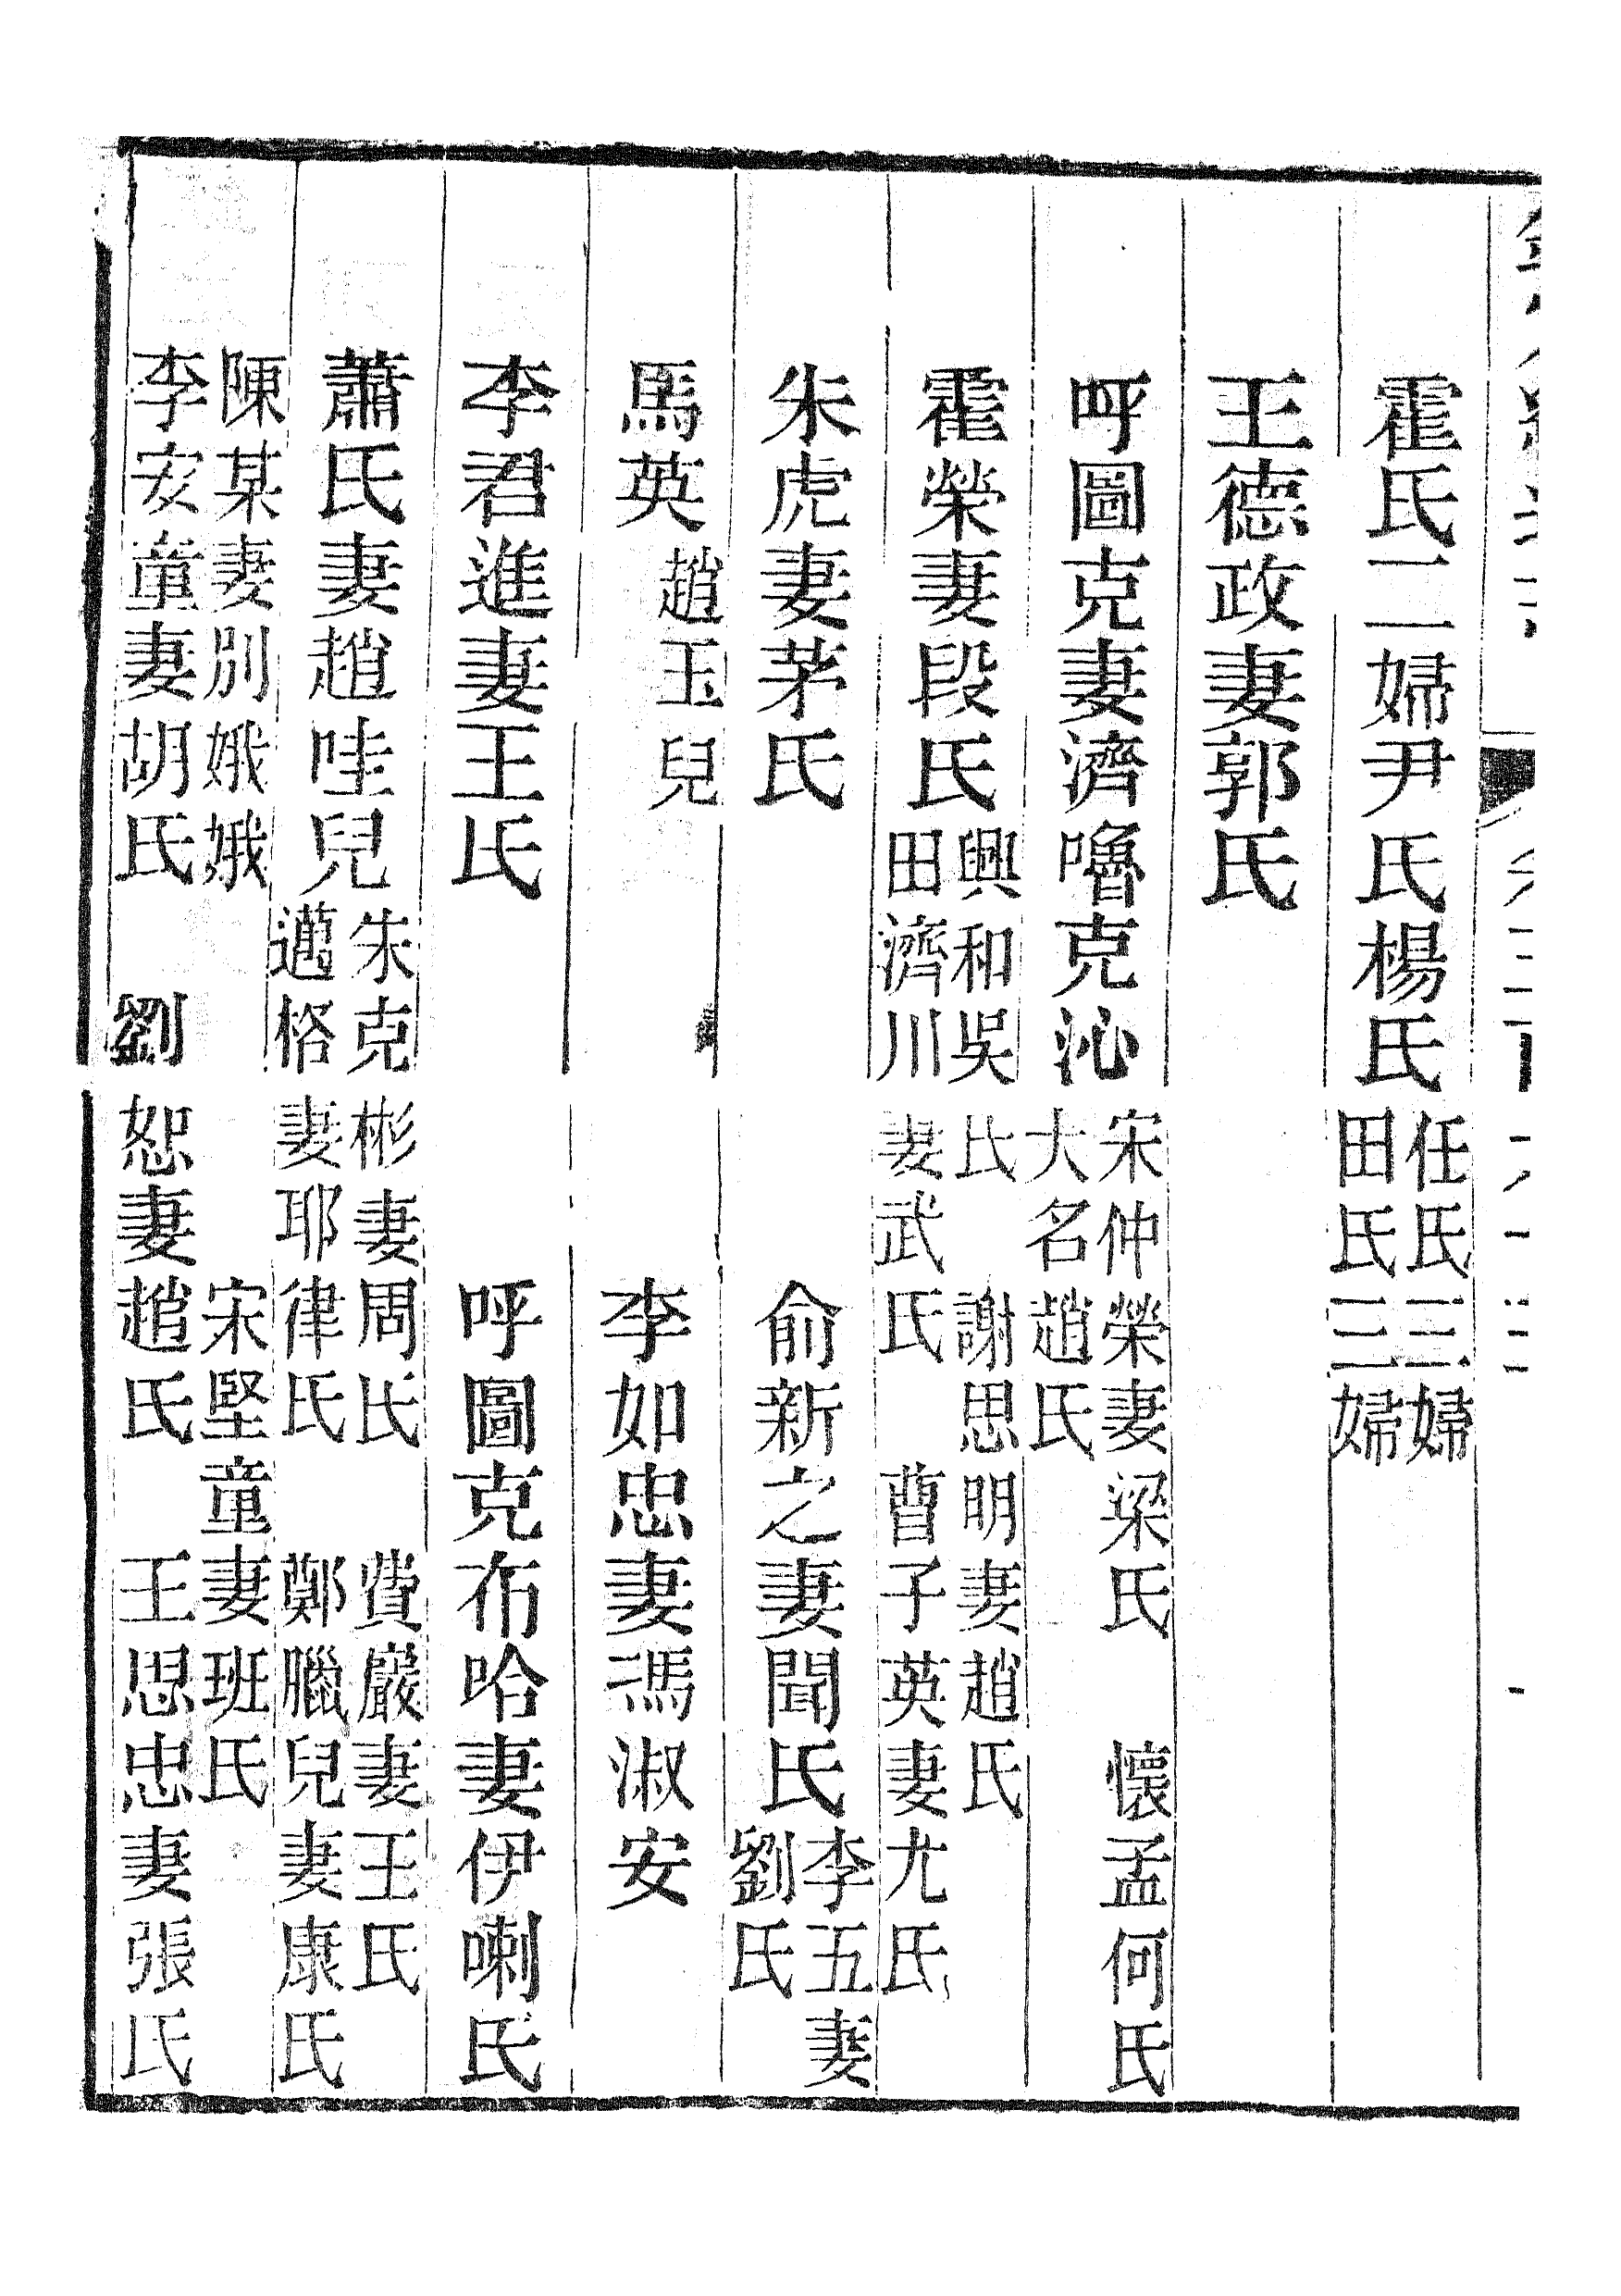 霍氏二婦尹氏楊氏
任氏三婦
田氏三婦
王德政妻郭氏
呼圖克妻濟嚕克沁
宋仲榮妻梁氏　懷孟何氏
大名趙氏
霍榮妻段氏
興和吳氏　謝思明妻趙氏
田濟川妻武氏　曹子英妻尤氏
朱虎妻茅氏　俞新之妻聞氏
李五妻
劉氏
馬英　趙玉兒　李如忠妻馮淑安
李君進妻王氏　呼圖克布哈妻伊喇氏
蕭氏妻趙哇兒
朱克彬妻周氏　費巖妻王氏
邁格妻耶律氏　鄭臘兒妻康氏
陳某妻別娥娥　宋堅童妻班氏
李安童妻胡氏　劉恕妻趙氏　王思忠妻張氏